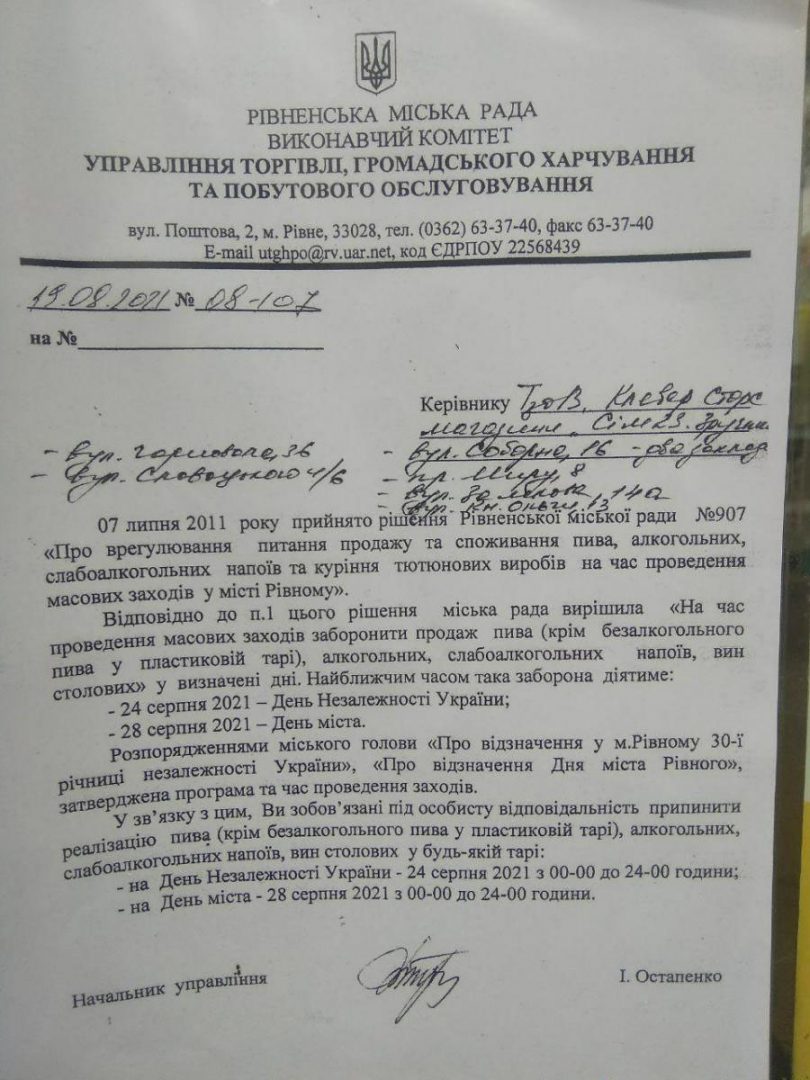 РІВНЕНСЬКА МІСЬКА РАДА
ВИКОНАВЧИЙ КОМІТЕТ
УПРАВЛІННЯ ТОРГІВЛІ, ГРОМАДСЬКОГО ХАРЧУВАННЯ
ТА ПОБУТОВОГО ОБСЛУГОВУВАННЯ
вул. Поштова, 2, м. Рівне, 33028, тел. (0362) 63-37-40, факс 63-37-40
E-mail utghpo@rv.uar.net, код ЄДРПОУ 22568439
19.08.2021 № 08-107
на №
Керівнику ТзОВ, Клевер Сторс
магазини "Сім23.
- вул. Соборна, 16 - два заклад
- пр. Миру, 8
- вул. Замкова, 14а
- вул. Кн. Ольги, 13
- вул. 36
- вул. Словацького 4/6
07 липня 2011 року прийнято рішення Рівненської міської ради №907
«Про врегулювання питання продажу та споживання пива, алкогольних,
слабоалкогольних напоїв та куріння тютюнових виробів на час проведення
масових заходів у місті Рівному».
Відповідно до п.1 цього рішення міська рада вирішила «На час
проведення масових заходів заборонити продаж пива (крім безалкогольного
пива у пластиковій тарі), алкогольних, слабоалкогольних напоїв, вин
столових» у визначені дні. Найближчим часом така заборона діятиме:
- 24 серпня 2021 – День Незалежності України;
- 28 серпня 2021 – День міста.
Розпорядженнями міського голови «Про відзначення у м.Рівному 30-ї
річниці незалежності України», «Про відзначення Дня міста Рівного»,
затверджена програма та час проведення заходів.
У зв’язку з цим, Ви зобов’язані під особисту відповідальність припинити
реалізацію пива (крім безалкогольного пива у пластиковій тарі), алкогольних,
слабоалкогольних напоїв, вин столових у будь-якій тарі:
- на День Незалежності України - 24 серпня 2021 з 00-00 до 24-00 години;
- на День міста - 28 серпня 2021 з 00-00 до 24-00 години.
Начальник управління
І. Остапенко